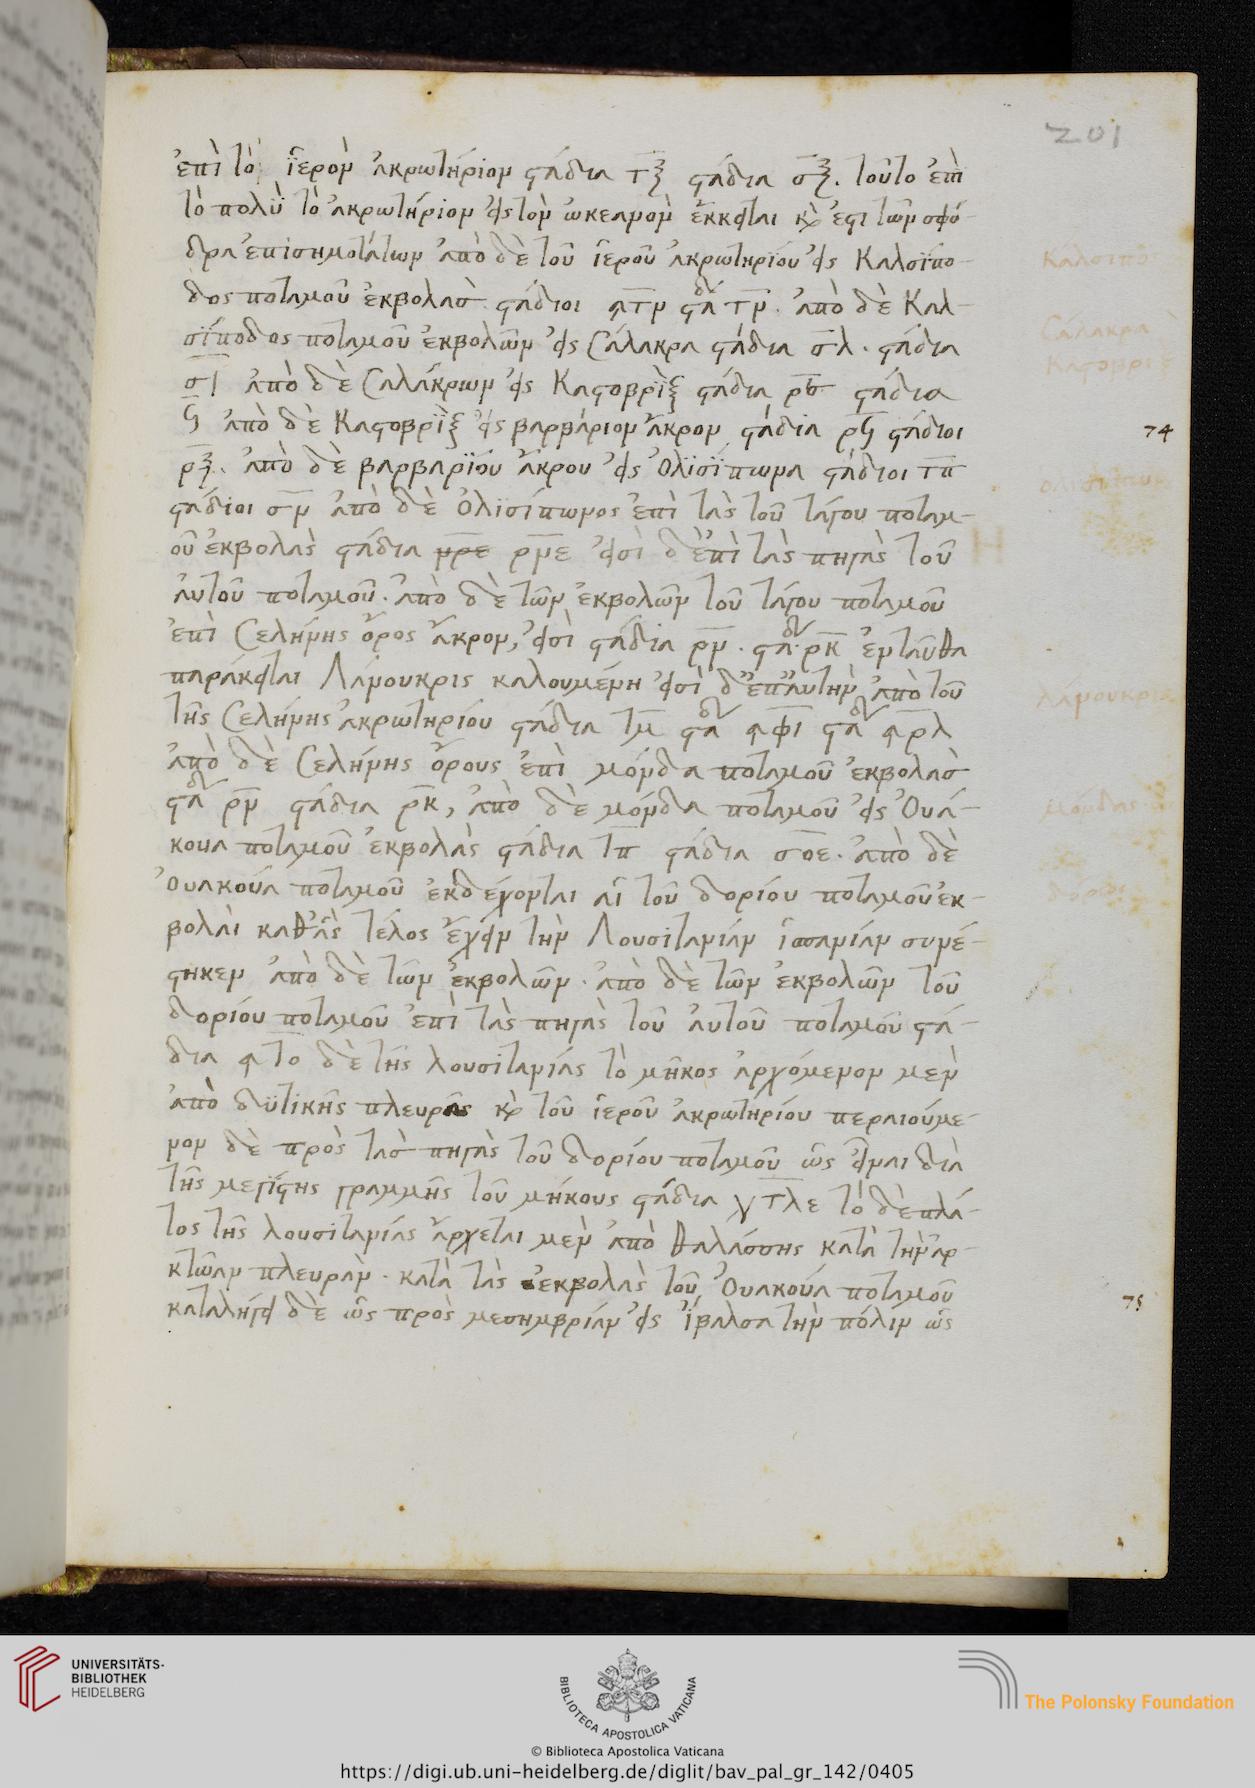 201
ἐπὶ τὸ ἱερὸν ἀκρωτήριον στάδια τξ στάδια σξ. τοῦτο ἐπὶ
τὸ πολὺ τὸ ἀκρωτήριον εἰς τὸν ὠκεανὸν ἔκκειται καὶ ἔστι τῶν σφό-
δρα ἐπισημοτάτων ἀπὸ δὲ τοῦ ἱεροῦ ἀκρωτηρίου εἰς Καλσίπο-
δος ποταμοῦ ἐκβολὰσ στάδιοι ͵ατν στάδ τν. ἀπὸ δὲ Καλ-
σίποδος ποταμοῦ ἐκβολῶν εἰς Σάλακρα στάδια σλ. στάδια
σι ἀπὸ δὲ Σαλάκρων εἰς Καστοβρὶξ στάδια στάδια
ἀπὸ δὲ Καστοβρὶξ εἰς βαρβάριον ἄκρον στάδια στάδιοι
ρξ. ἀπὸ δὲ βαρβαρίου ἄκρου εἰς Ὀλισίπωνα στάδιοι τπ
στάδιοι σν ἀπὸ δὲ Ὀλισίπωνος ἐπὶ τὰς τοῦ τάγου ποταμ-
οῦ ἐκβολὰς στάδια ρνε εἰσὶ δὲ ἐπὶ τὰς πηγὰς τοῦ
αὐτοῦ ποταμοῦ. ἀπὸ δὲ τῶν ἐκβολῶν τοῦ τάγου ποταμοῦ
ἐπὶ Σελήνης ὄρος ἄκρον, εἰσὶ στάδια ρν. στάδ ρκ ἐνταῦθα
παράκειται Λάνουκρις καλουμένη εἰσὶ δ' ἐπ' αὐτὴν ἀπὸ τοῦ
τῆς Σελήνης ἀκρωτηρίου στάδια τν στάδ ͵αφι στάδ ͵αρλ
ἀπὸ δὲ Σελήνης ὄρους ἐπὶ μόνδα ποταμοῦ ἐκβολὰσ
στάδ ρν στάδια ρκ, ἀπὸ δὲ μόνδα ποταμοῦ εἰς Οὐα-
κουα ποταμοῦ ἐκβολὰς στάδια τπ στάδια σοε. ἀπὸ δὲ
Οὐακούα ποταμοῦ ἐκδέχονται αἱ τοῦ δορίου ποταμοῦ ἐκ-
βολαὶ καθ' ἃς τέλος ἔχειν τὴν Λουσιτανίαν ἱσπανίαν συνέ-
στηκεν ἀπὸ δὲ τῶν ἐκβολῶν. ἀπὸ δὲ τῶν ἐκβολῶν τοῦ
δορίου ποταμοῦ ἐπὶ τὰς πηγὰς τοῦ αὐτοῦ ποταμοῦ στά-
δια ͵ατο δὲ τῆς λουσιτανίας τὸ μῆκος ἀρχόμενον μὲν
ἀπὸ δυτικῆς πλευρᾶς καὶ τοῦ ἱεροῦ ἀκρωτηρίου περαιούμε-
νον δὲ πρὸς τὰσ πηγὰς τοῦ δορίου ποταμοῦ ὡς εἶναι διὰ
τῆς μεγίστης γραμμῆς τοῦ μήκους στάδια γτλε τὸ δὲ πλά-
τος τῆς λουσιτανίας ἄρχεται μὲν ἀπὸ θαλάσσης κατὰ τὴν ἀρ-
κτῶαν πλευρὰν. κατὰ τὰς ἐκβολὰς τοῦ Οὐακούα ποταμοῦ
καταλήγει δὲ ὡς πρὸς μεσημβρίαν εἰς Ἴβαλσα τὴν πόλιν ὡς
Σάλακρα
Καστοβρὶξ
74
λάνουκρις
75
UNIVERSITÄTS-
BIBLIOTHEK
HEIDELBERG
BIBLIOTECA APOSTOLICA VATICANA
The Polonsky Foundation
© Biblioteca Apostolica Vaticana
https://digi.ub.uni-heidelberg.de/diglit/bav_pal_gr_142/0405